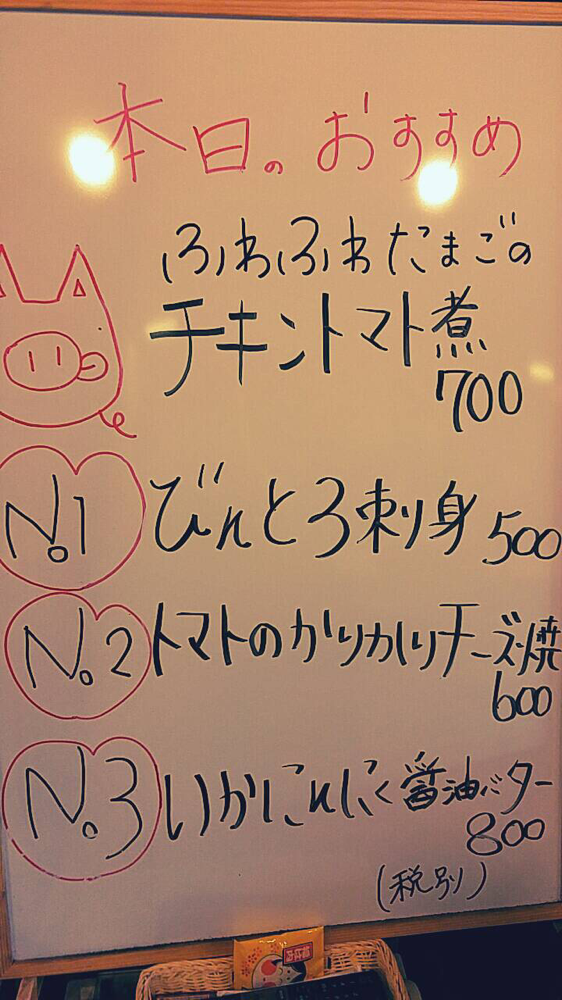 本日のおすすめ
ふわふわたまごの
チキントマト煮
700
No.1 びんとろ刺り身 500
No.2 トマトのかりかりチーズ焼
600
No.3 いかにんにく醤油バター
800
(税別)